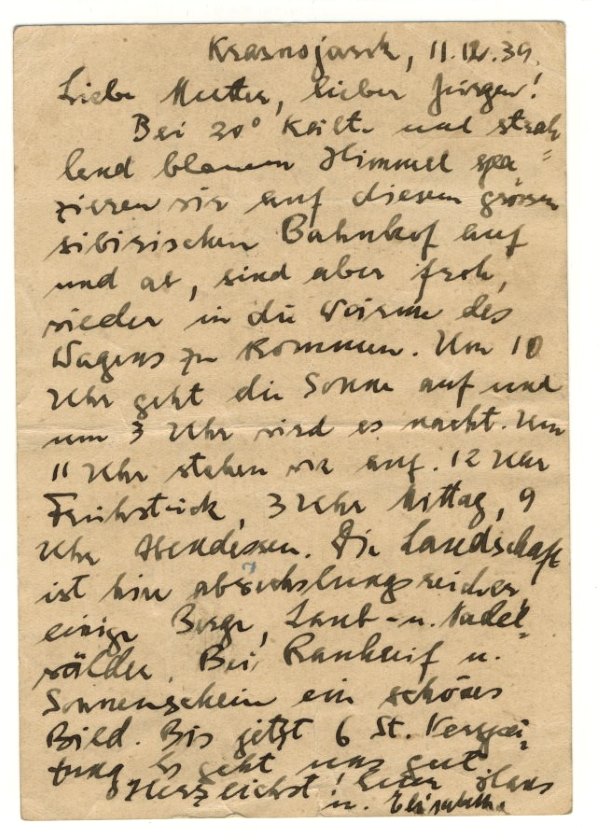 Krasnojarsk, 11.12.39.
Liebe Mutter, lieber Jürgen!
Bei 20° Kälte und strah
lend blauem Himmel spa=
zieren wir auf diesem grossen
sibirischen Bahnhof auf
und ab, sind aber froh,
wieder in die Wärme des
Wagens zu kommen. Um 10
Uhr geht die Sonne auf und
um 3 Uhr wird es nacht. Um
11 Uhr stehen wir auf. 12 Uhr
Frühstück, 3 Uhr Mittag, 9
Uhr Abendessen. Die Landschaft
ist hier abwechslungsreicher,
einige Berge, Laub- u. Nadel=
wälder. Bei Rauhreif u.
Sonnenschein ein schönes
Bild. Bis jetzt 6 St. Verspä=
tung. Es geht uns gut.
Herzlichst! Euer Claus
u. Elisabeth